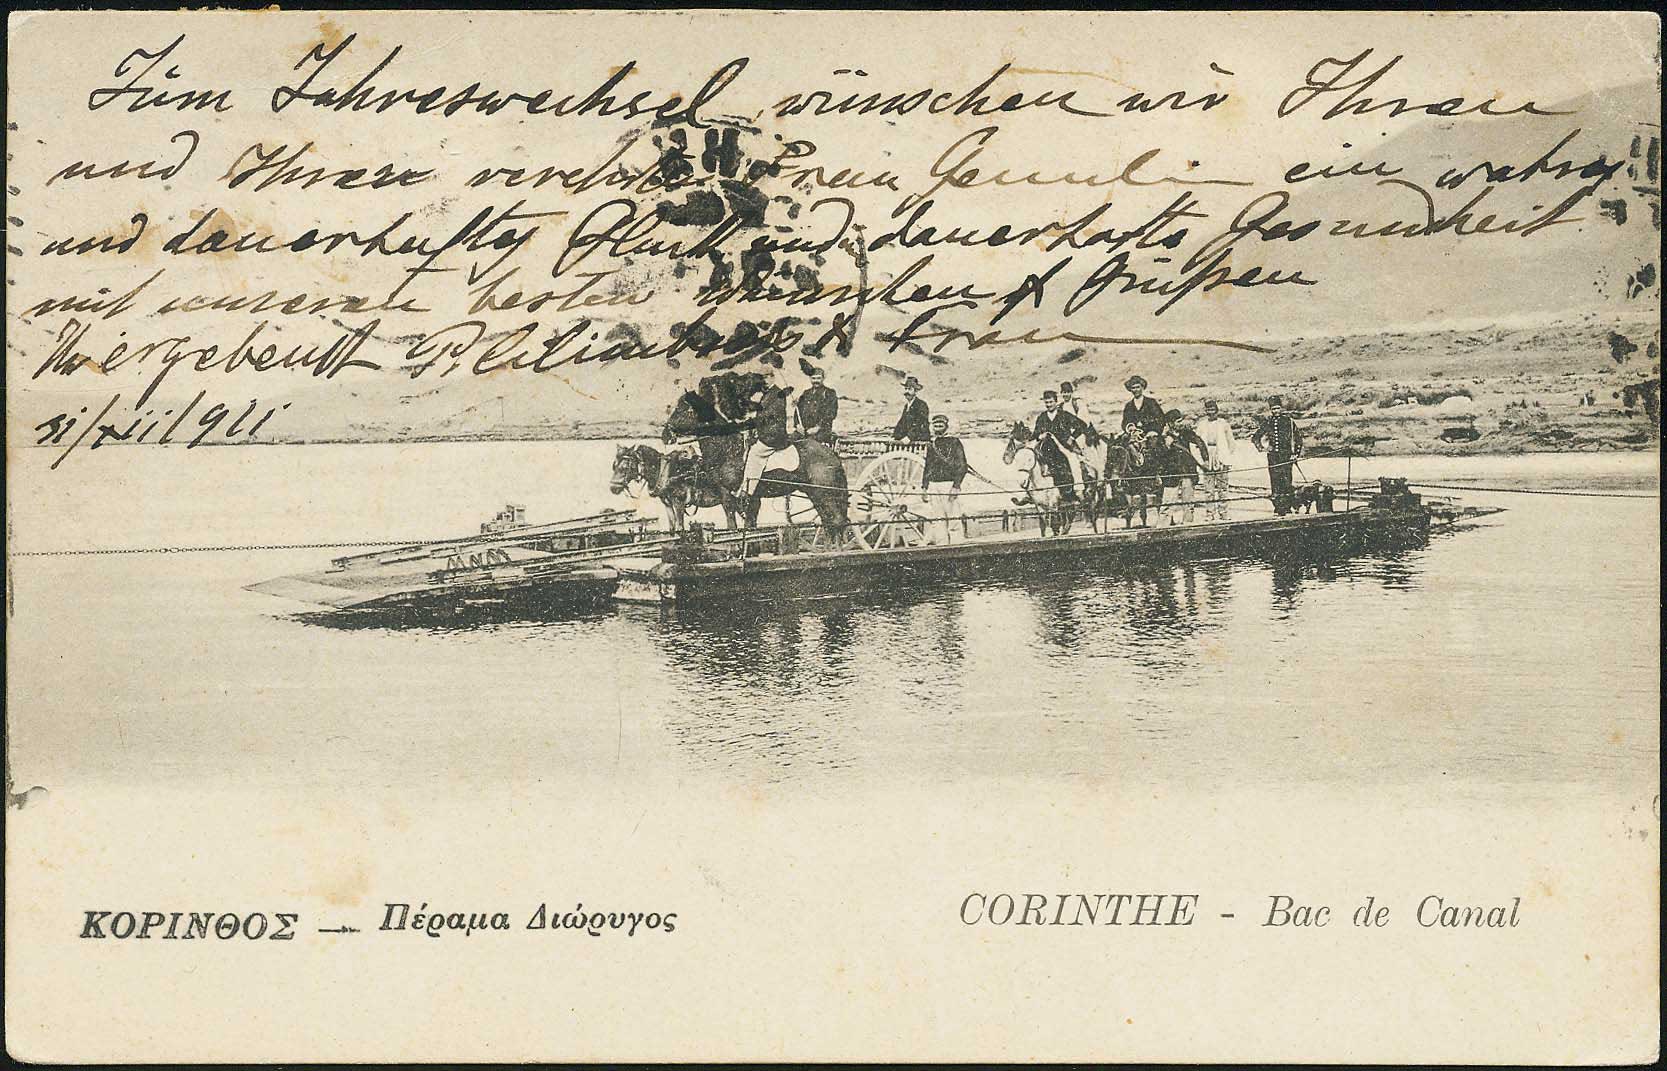 Zum Jahreswechsel wünschen wir Ihnen
und Ihrer verehrten Frau Gemahlin ein wahres
und dauerhaftes Glück und dauerhafte Gesundheit
mit unseren besten Wünschen & Grüßen
Ihr ergebenst & Frau
31/xii/911
ΚΟΡΙΝΘΟΣ — Πέραμα Διώρυγος
CORINTHE - Bac de Canal